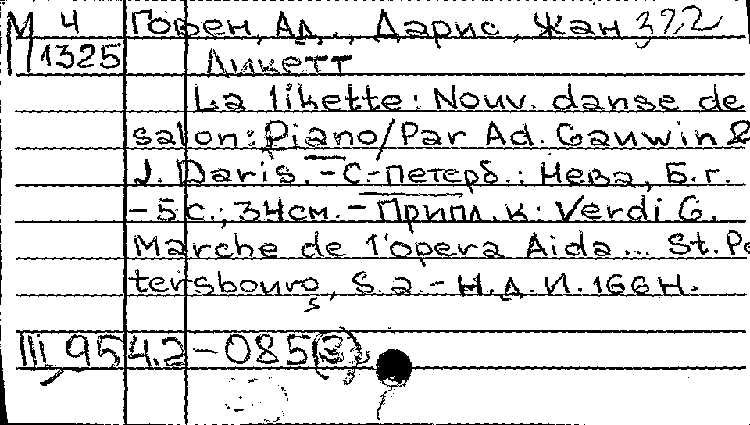 М 4 Говен, Ад., Дарис, Жан 3922
1325 Ликетт
La likette: Nouv. danse de
salon: Piano/Par Ad. Gauwin &
J. Daris. - С-Петерб.: Нева, Б.г.
- 5 с.; 34см. - Припл. к: Verdi G.
Marche de l'opera Aida... St. Pe
tersbourg, S.a. - Н.д. И. 166 Н.
III 95 4.2 - 085(3)